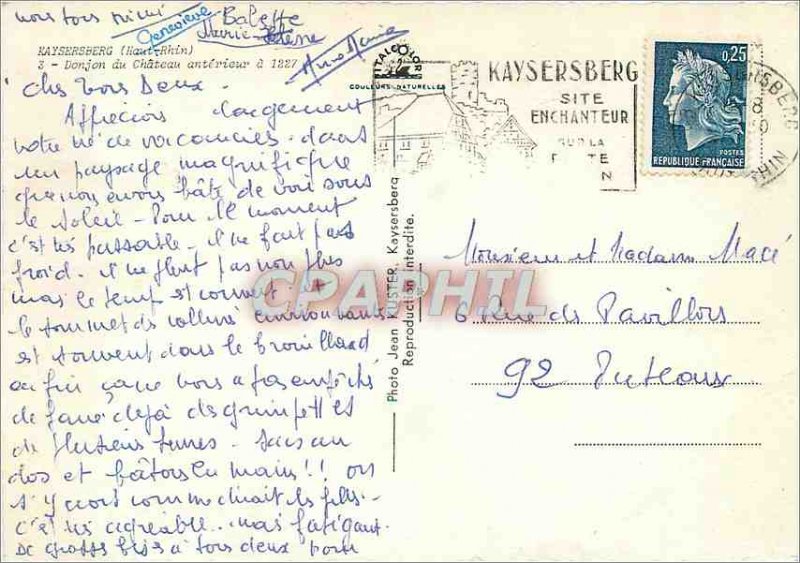 nous tous mimi
Geneviève
Babette
Marie-Hélène
Anne Marie
KAYSERSBERG (Haut-Rhin)
3 - Donjon du Château antérieur à 1227
Chers tous Deux.
largement
notre de vacances. dans
un paysage magnifique
que nous avons hâte de voir sous
le soleil - Pour le moment
c'est très passable. il ne fait pas
froid. il ne pleut pas non plus
mais le temps est couvert et
le sommet des collines environnantes
est souvent dans le brouillard
enfin ça ne nous a pas empêchés
de faire déjà des grimpettes
de plusieurs - sacs au
dos et bâtons en mains!! on
s'y croit comme disait les filles.
c'est très agréable. mais fatigant.
De grosses bises à tous deux pour
COULEURS NATURELLES
KAYSERSBERG
SITE
ENCHANTEUR
SUR LA
0,25
POSTES
REPUBLIQUE FRANÇAISE
Photo Jean KUSTER, Kaysersberg
Reproduction interdite.
CPAPHIL
Monsieur et Madame Macé
6 Rue des Pavillons
92 Puteaux